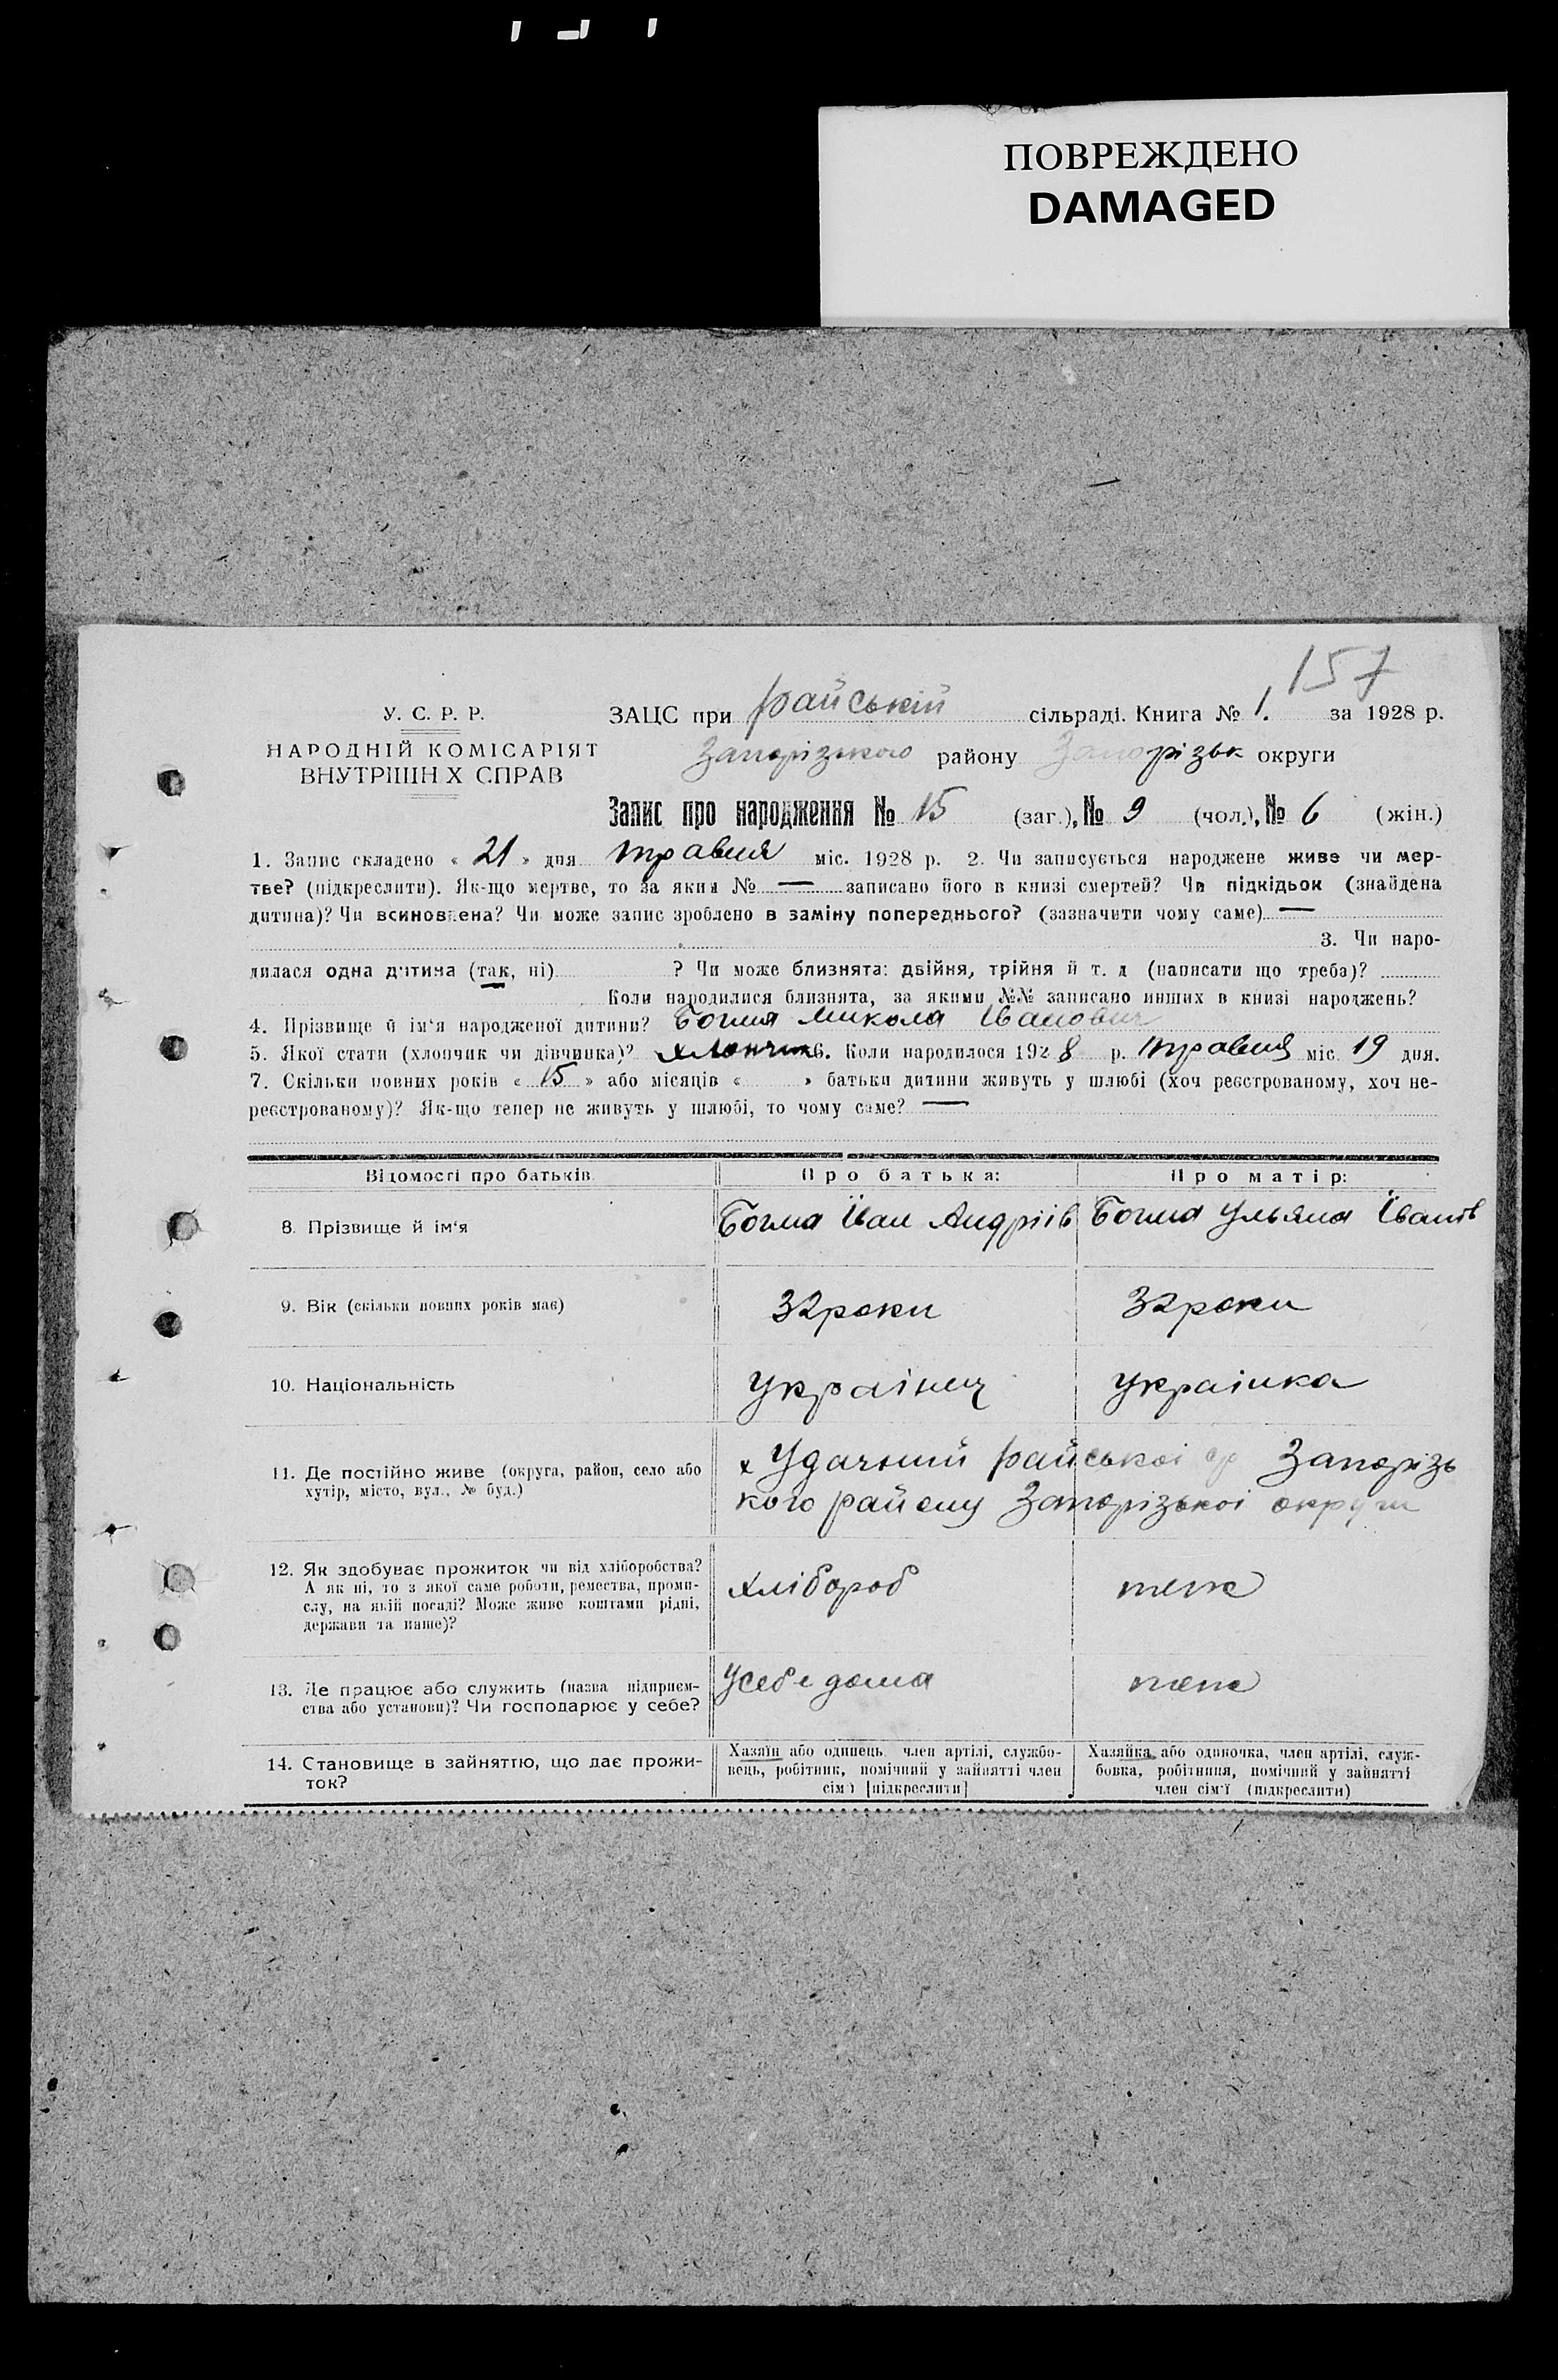 ПОВРЕЖДЕНО
DAMAGED
157
У. С. Р. Р.
НАРОДНІЙ КОМІСАРІЯТ
ВНУТРІШН Х СПРАВ
ЗАЦС при райській сільраді. Книга № 1. за 1928 р.
Запорізького району Запорізьк округи
Запис про народження № 15 (заг.), № 9 (чол.), № 6 (жін.)
1. Запис складено « 21 » дня травня міс. 1928 р. 2. Чи записується народжене живе чи мер-
тве? (підкреслити). Як-що мертве, то за яким № — записано його в книзі смертей? Чи підкідьок (знайдена
дитина)? Чи всиновлена? Чи може запис зроблено в заміну попереднього? (зазначити чому саме) —
3. Чи наро-
дилася одна дитина (так, ні) ? Чи може близнята: двійня, трійня й т. д (написати що треба)?
Коли народилися близнята, за якими №№ записано инших в книзі народжень?
4. Прізвище й ім‘я народженої дитини? Богма Микола Іванович
5. Якої стати (хлопчик чи дівчинка)? хлопчик 6. Коли народилося 1928 р. травня міс. 19 дня.
7. Скільки повних років « 15 » або місяців « » батьки дитини живуть у шлюбі (хоч реєстрованому, хоч не-
реєстрованому)? Як-що тепер не живуть у шлюбі, то чому саме? —
Відомості про батьків
Про батька:
Про матір:
8. Прізвище й ім‘я
Богма Іван Андріїв
Богма Ульяна Іванів
9. Вік (скільки повних років має)
32 роки
32 роки
10. Національність
українец
українка
11. Де постійно живе (округа, район, село або
хутір, місто, вул., № буд.)
х Удачний райської с/р Запорізь
кого району Запорізької округи
12. Як здобуває прожиток чи від хліборобства?
А як ні, то з якої саме роботи, ремества, проми-
слу, на якій посаді? Може живе коштами рідні,
держави та инше)?
хлібороб
теж
13. Де працює або служить (назва підприєм-
ства або установи)? Чи господарює у себе?
У себе дома
теж
14. Становище в зайняттю, що дає прожи-
ток?
Хазяїн або одинець член артілі, службо-
вець, робітник, помічний у зайнятті член
сім'ї [підкреслити]
Хазяйка або одиночка, член артілі, служ-
бовка, робітниця, помічний у зайнятті
член сім'ї (підкреслити)